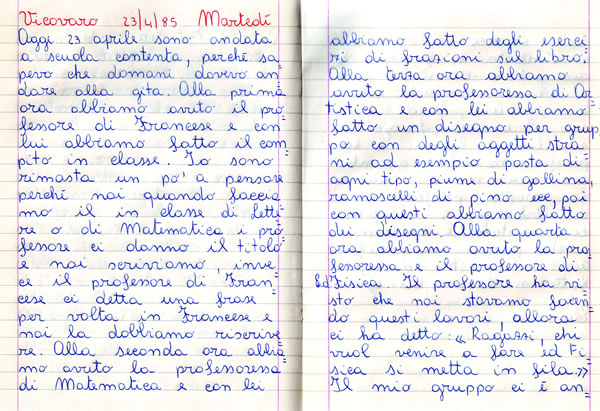 Vicovaro 23/4/85 Martedí
Oggi 23 aprile sono andata
a scuola contenta, perché sa=
pevo che domani dovevo an=
dare alla gita. Alla prima
ora abbiamo avuto il pro=
fessore di Francese e con
lui abbiamo fatto il com=
pito in classe. Io sono
rimasta un po' a pensare
perché noi quando faccia=
mo il in classe di Lette=
re o di Matematica i pro=
fessore ci danno il titolo
e noi scriviamo, inve=
ce il professore di Fran=
cese ci detta una frase
per volta in Francese e
noi la dobbiamo riscrive=
re. Alla seconda ora abbia=
mo avuto la professoressa
di Matematica e con lei
abbiamo fatto degli eserci=
zi di frazioni sul libro.
Alla terza ora abbiamo
avuto la professoressa di Ar=
tistica e con lei abbiamo
fatto un disegno per grup=
po con degli oggetti stra=
ni ad esempio pasta di
ogni tipo, piume di gallina,
ramoscelli di pino ecc, poi
con questi abbiamo fatto
dei disegni. Alla quarta
ora abbiamo avuto la pro=
fessoressa e il professore di
Ed Fisica. Il professore ha vi=
sto che noi stavamo facen=
do questi lavori, allora
ci ha detto: « Ragazzi, chi
vuol venire a fare ed Fi=
sica si metta in fila.»
Il mio gruppo ci è an=